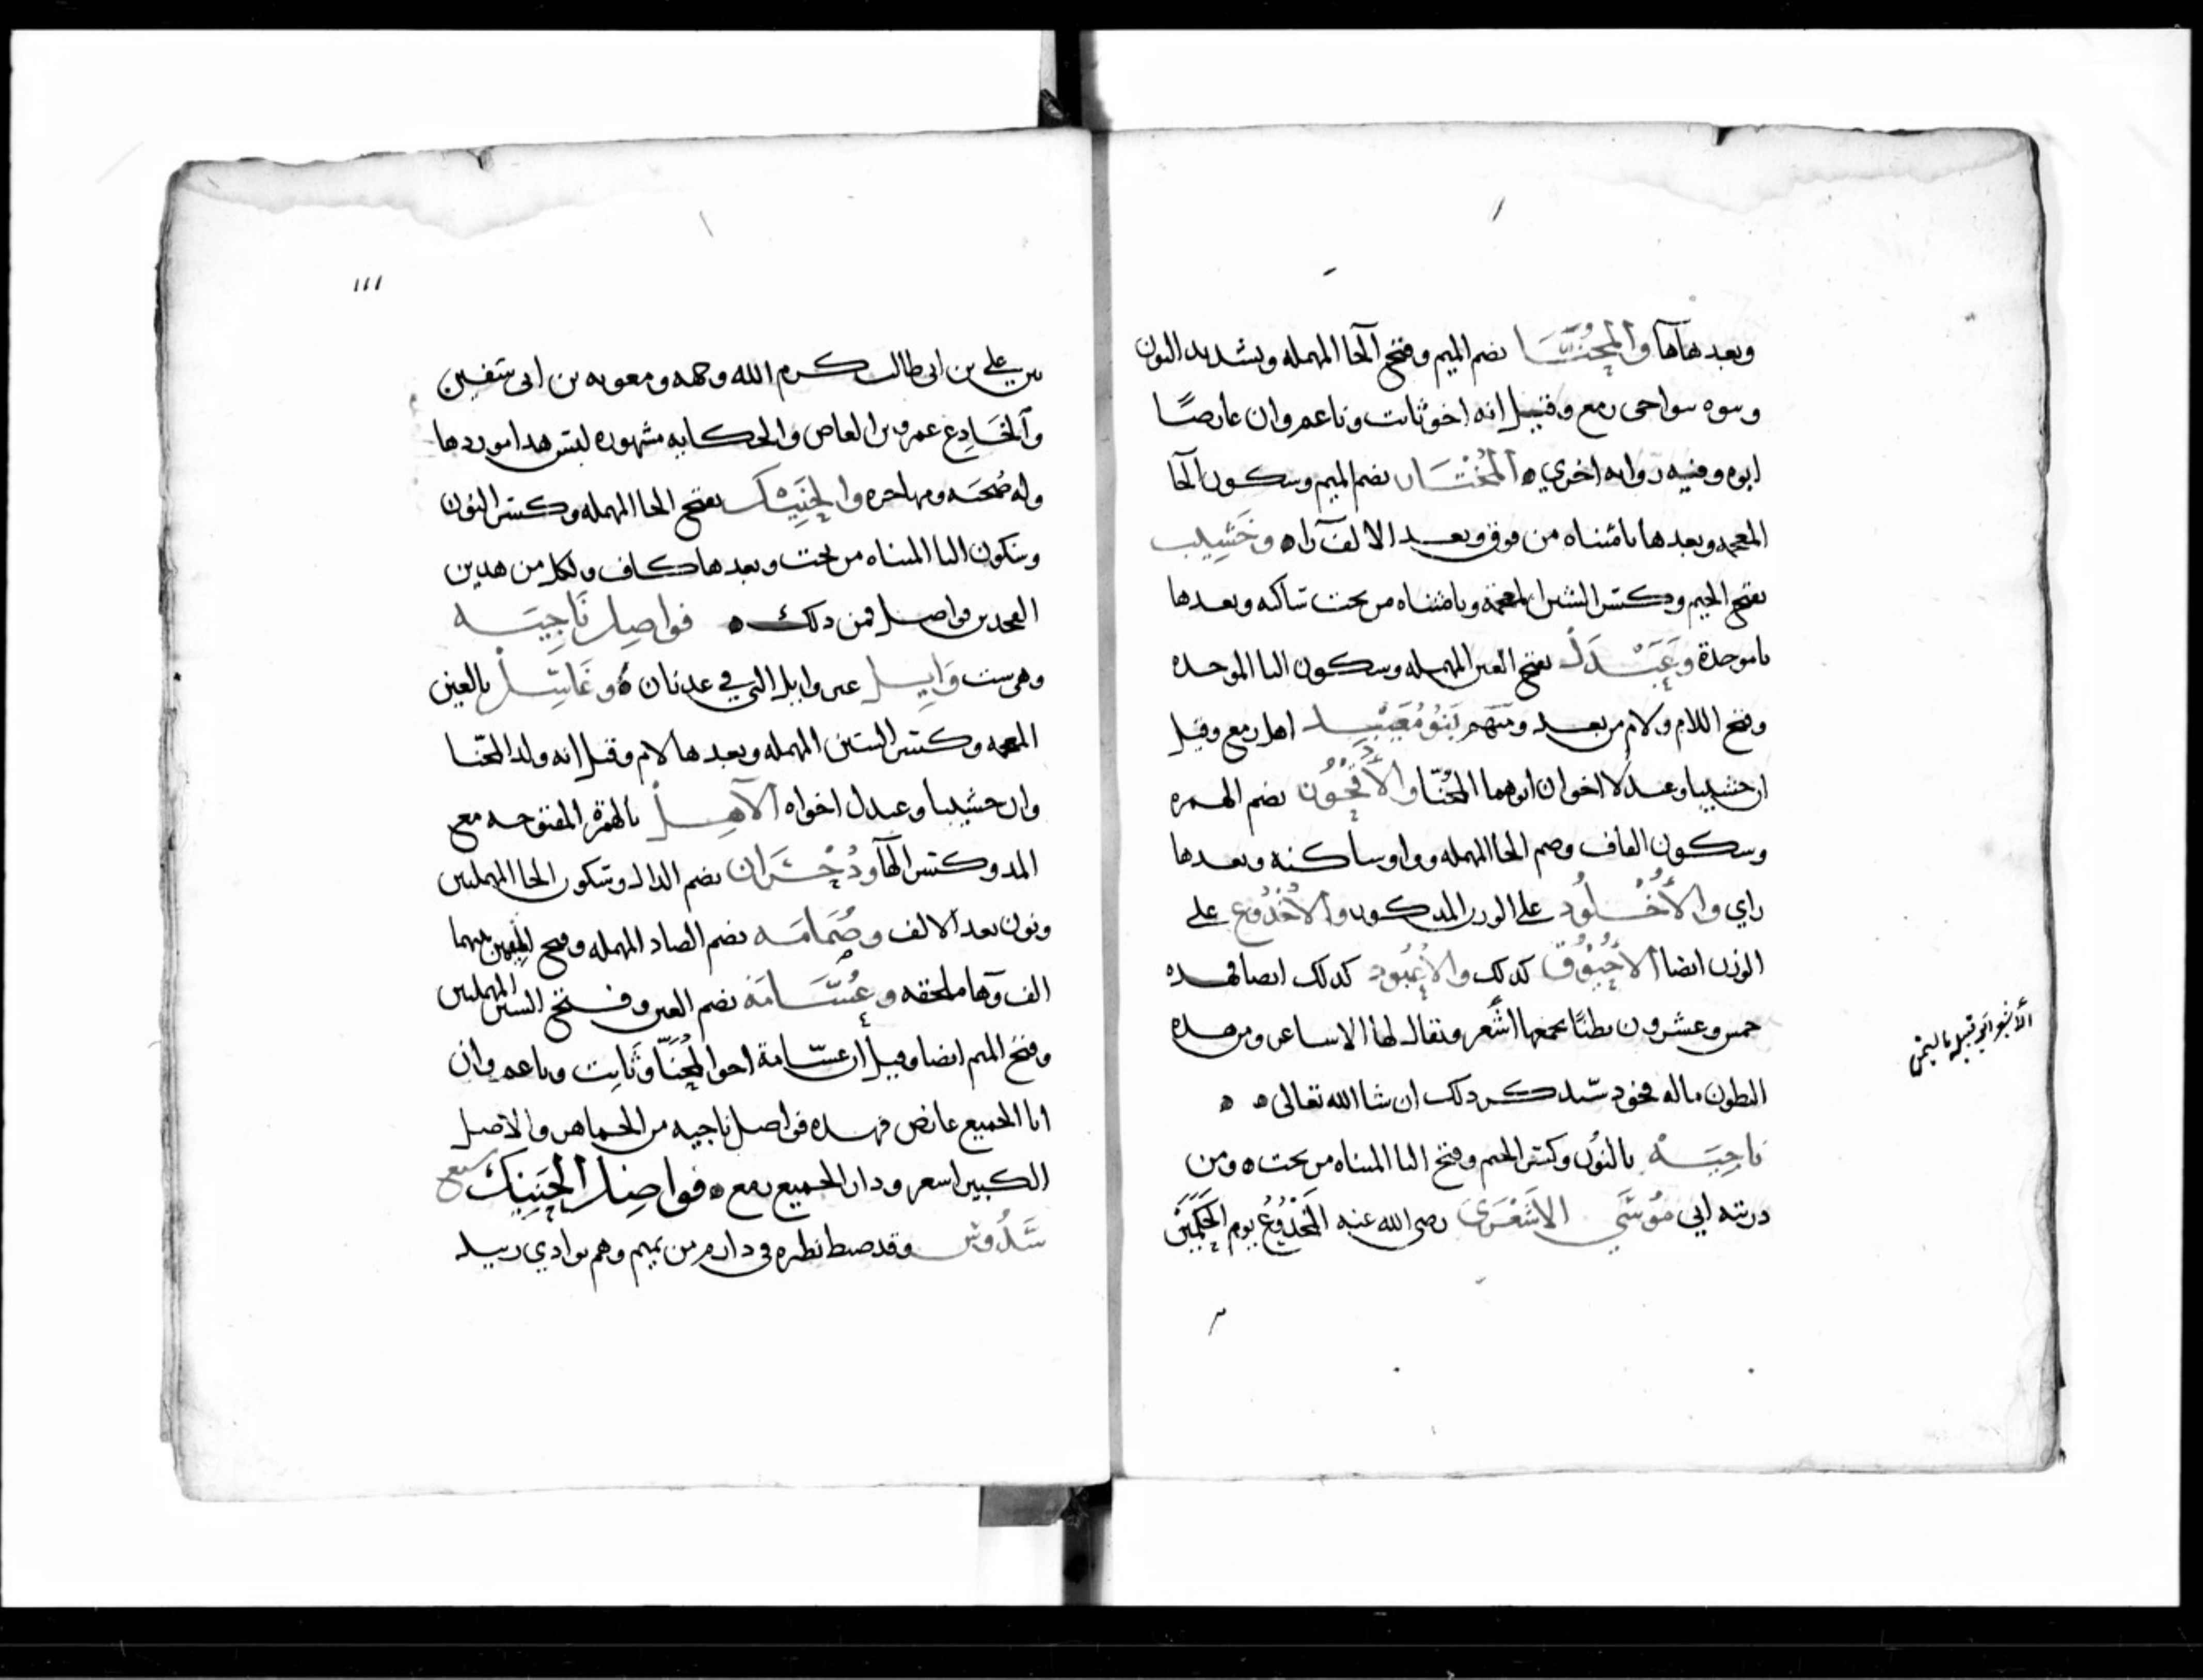 وبعدها هآ والمُحَنَّا بضم الميم وفتح الحا المهمله وتشديد النون
وبنوه بنواحى رمع وقيل انه اخو ثابت وناعم وان عايضًا
ابوه وفيه روايه اخري ه المُخْتَار بضم الميم وسكون الحا
المعجمه وبعدها تا مثناه من فوق وبعد الالف را ه وجَشِيب
بفتح الجيم وكسر الشين المعجمة ويا مثناه من تحت ساكنه وبعدها
با موحدة وعَبْدَل بفتح العين المهمله وسكون البا الموحده
وفتح اللام ولام من بعد ومنهم بَنُو مُعَيْبِيد اهل رمع وقيل
ان جشيبا وعبدلا اخوان ابوهما المُحَنّا والأُقْحُون بضم الهمزه
وسكون القاف وضم الحا المهمله وواو ساكنه وبعدها
راي والأُخْلُود على الوزن المذكور والأُخْدُوع على
الوزن ايضا الأُحْبُوق كذلك والأُعْبُود كذلك ايضا فهذه
خمس وعشرون بطنًا يجمعها اشعر ويقال لها الاشاعر ومن هذه
البطون ماله فخوذ سنذكر ذلك ان شا الله تعالى ه ه
ناجِيَة بالنون وكسر الجيم وفتح اليا المثناه من تحت ه ومن
ذريته ابي مُوسَي الاشْعَرَي رضى الله عنه المخْدُوع يوم الحَكَمَيْن
الأشعر ابو قبيله باليمن
١١١
بين علي بن ابى طالب كرم الله وجهه ومعويه بن ابى سفين
والمخَادِع عمرو بن العاص والحكايه مشهوره ليس هذا موردها
وله صُحبَه ومهاجره والحَنِيْك بفتح الحا المهمله وكسر النون
وسكون اليا المثناه من تحت وبعدها كاف ولكل من هذين
الفخذين فواصل فمن ذلك ه فواصِل نَاجِيَه
وهى ست وَايِل غير وايل التي في عدنان ه وغَاسِل بالغين
المعجمه وكسر السين المهمله وبعدها لام وقيل انه ولد المحنّا
وان جشيبا وعبدل اخواه الآهِل بالهمزة المفتوحه مع
المد وكسر الهآ ودُحْشَران بضم الدال وسكون الحا المهملتين
ونون بعد الالف وصُمَامَه بضم الصاد المهمله وفتح الميمين بينهما
الف وهآ ملحقه وعُسَامَة بضم العين وفتح السين المهملتين
وفتح الميم ايضا وقيل ان عسّامة اخو المُحَنَّا وثَابِت وناعم وان
ابا الجميع عايض فهذه فواصل ناجيه من الجماهر والاصل
الكبير اشعر ودار الجميع رمع ه فواصِل الحَنِيْك سبع
سَدُوس وقد ضبط نظيره فى دارم من تميم وهم بوادي زبيد